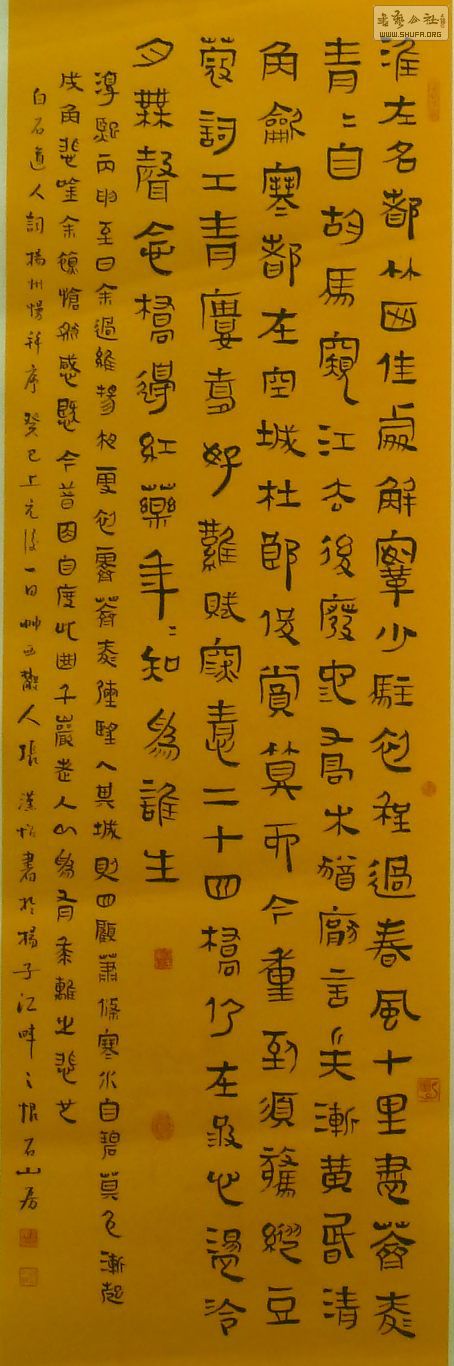 书艺公社
WWW.SHUFA.ORG
淮左名都竹西佳處解鞌少駐初程過春風十里盡薺麥
青〻自胡馬窺江去後廢池喬木猶厭言兵漸黃昏清
角龡寒都在空城杜郎俊賞算而今重到須驚縱豆
蔻詞工青廔夢好難賦深意二十四橋仍在波心蕩冷
夕無聲念橋邊紅藥年〻知為誰生
淳熙丙申至日余過維揚夜雪初霽薺麥彌望入其城則四顧蕭條寒水自碧莫色漸起
戍角悲唫余懷愴然感慨今昔因自度此曲千巖老人以為有黍離之悲也
白石道人詞揚州慢并序癸巳上元後一日散人張漢書於揚子江畔之石山居